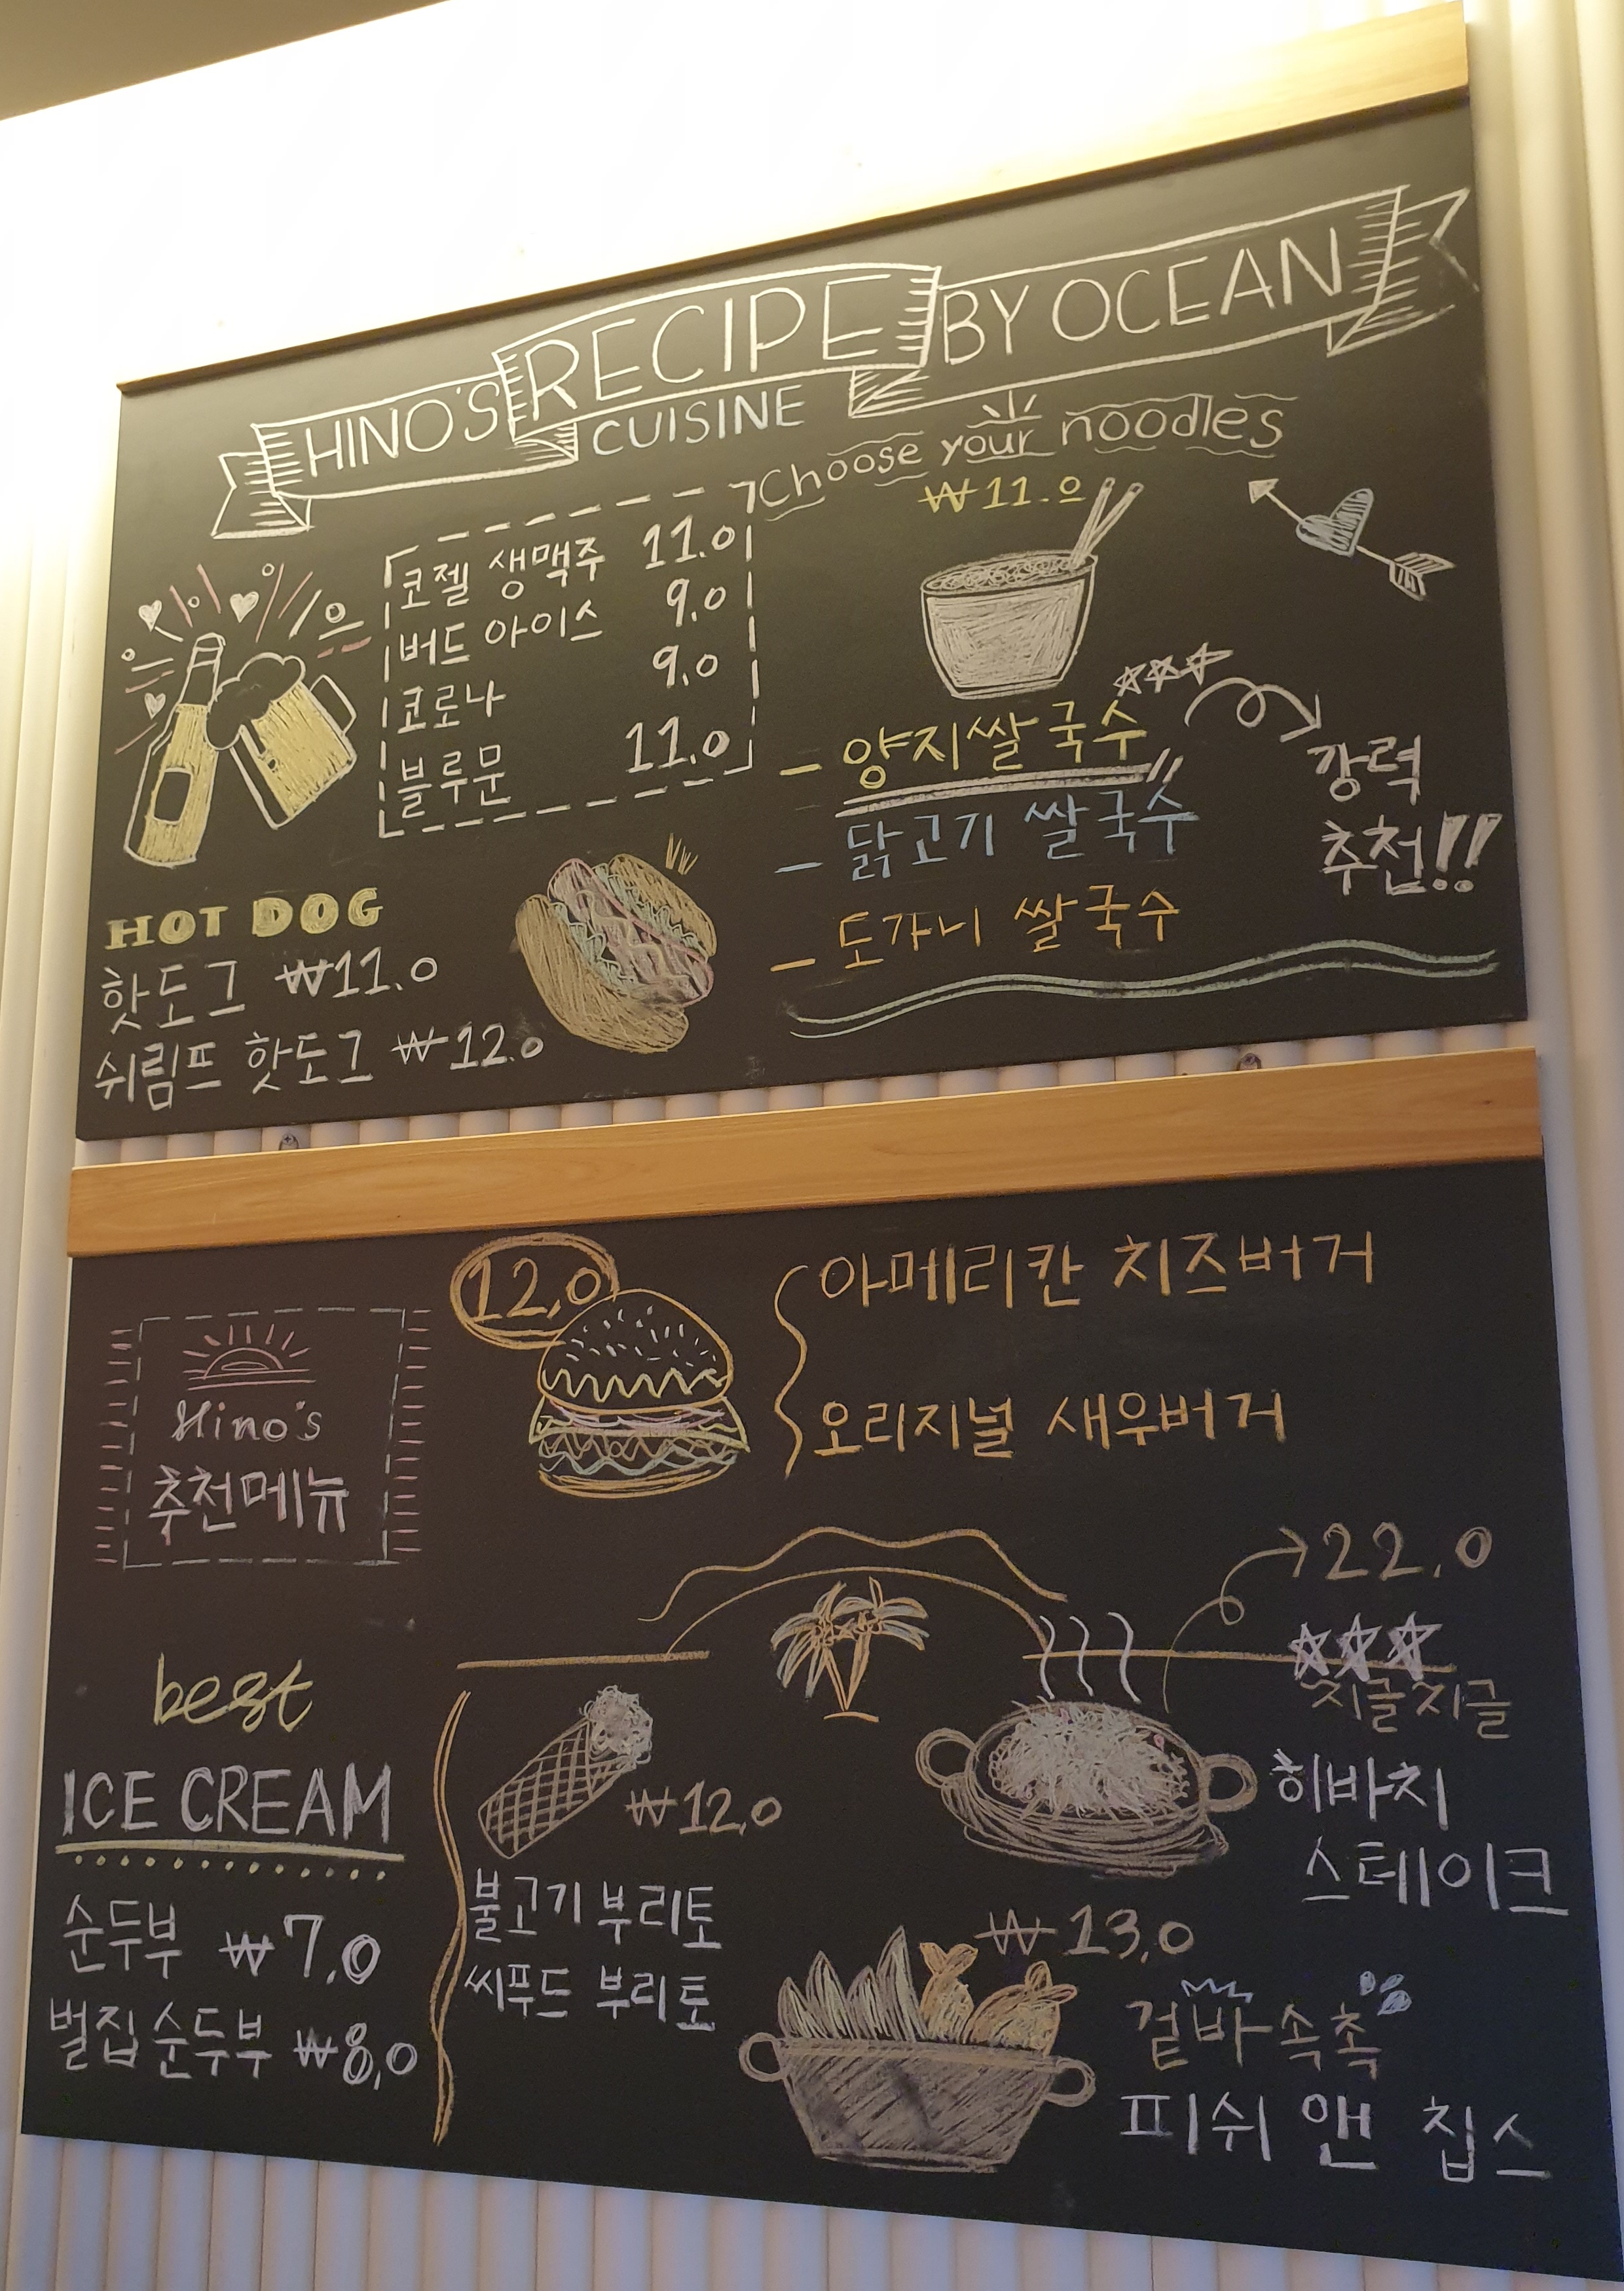 HINO'S RECIPE BY OCEAN
CUISINE
Choose your noodles
₩11.0
코젤 생맥주 11.0
버드 아이스 9.0
코로나 9.0
블루문 11.0
- 양지쌀국수
- 닭고기 쌀국수
- 도가니 쌀국수
강력
추천!!
HOT DOG
핫도그 ₩11.0
쉬림프 핫도그 ₩12.0
12.0
아메리칸 치즈버거
오리지널 새우버거
Hino's
추천메뉴
22.0
지글지글
히바치
스테이크
best
ICE CREAM
순두부 ₩7.0
벌집순두부 ₩8.0
₩12.0
불고기 부리토
씨푸드 부리토
₩13.0
겉바속촉
피쉬 앤 칩스